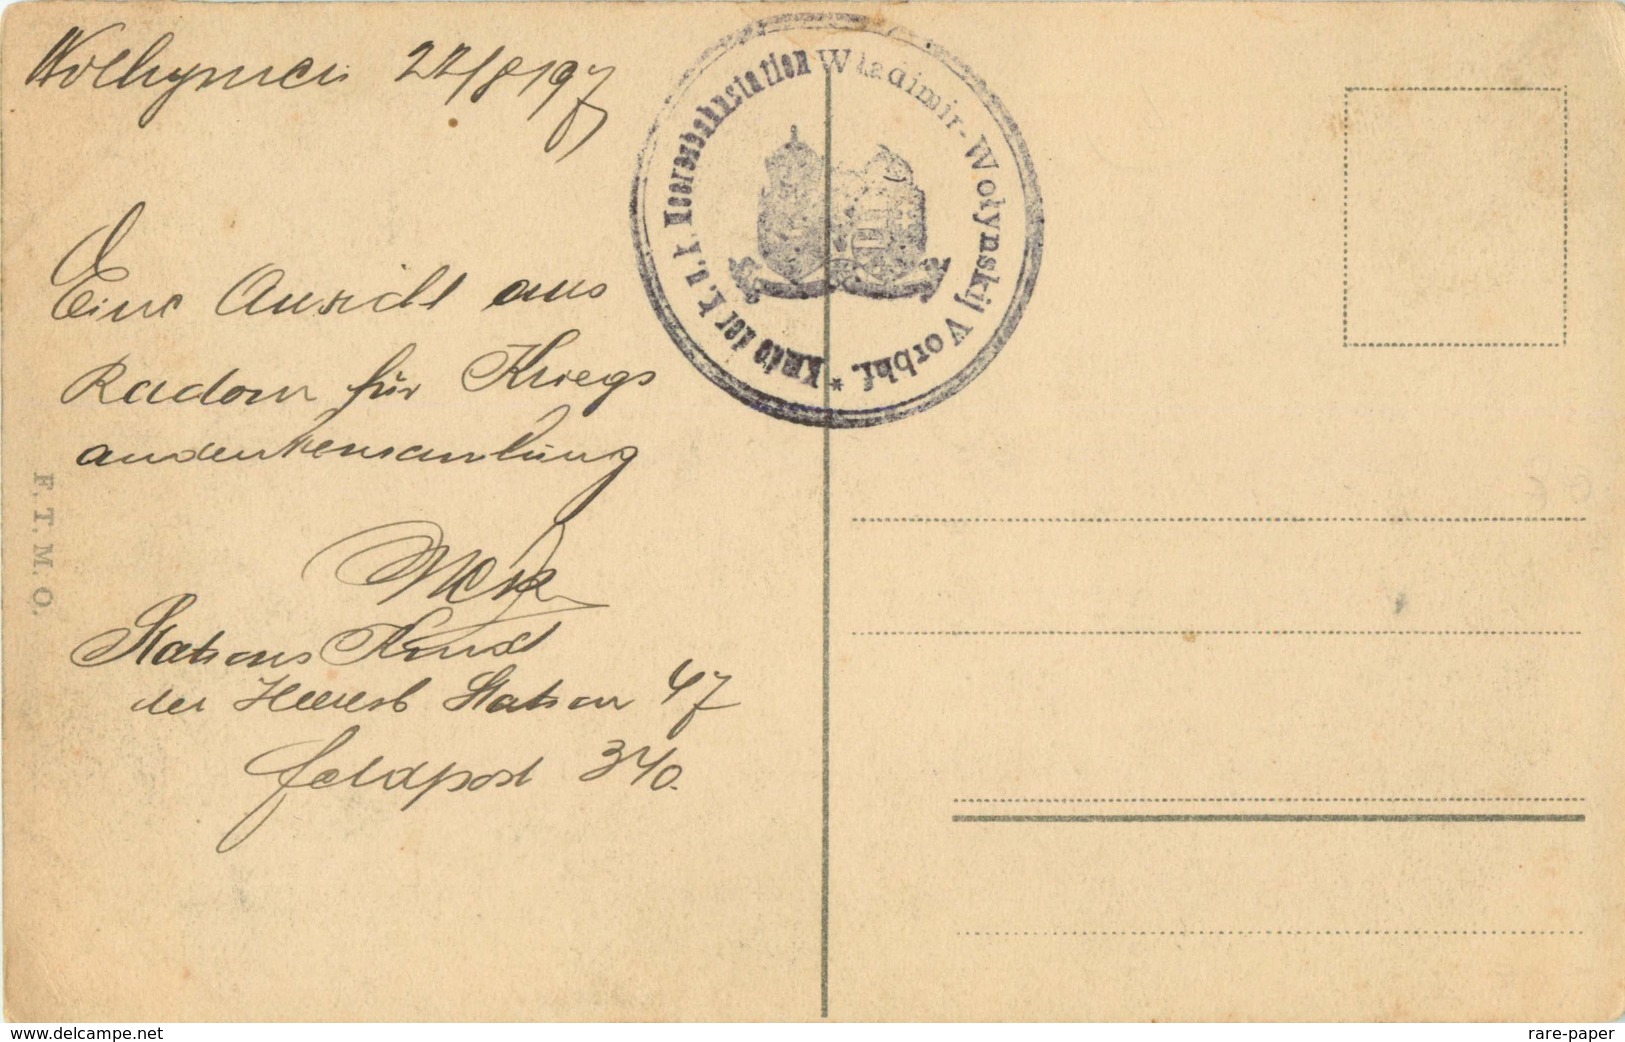 Wolhynien 22/8 1917
Kmdo der k. u. k. Heeresbahnstation Władimir-Wołynskij Vorbhf. *
Eine Ansicht aus
Radom für Kriegs
andenkensamlung
Stations Kmdt
der Heeresb Station 47
Feldpost 340.
F. T. M. O.
www.delcampe.net
rare-paper